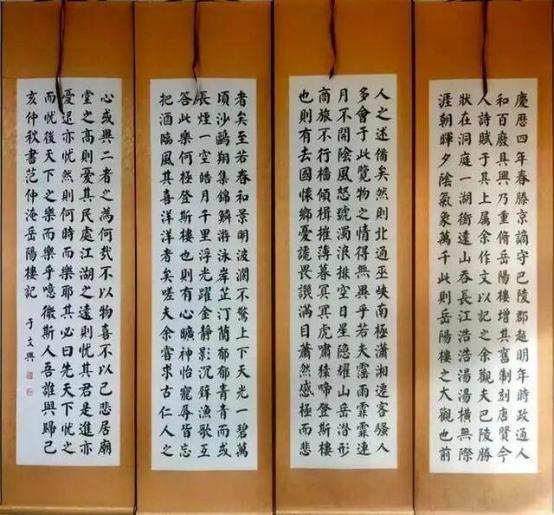 慶曆四年春滕京謫守巴陵郡越明年時政通人
和百廢具興乃重脩岳陽樓增其舊制刻唐賢今
人詩賦于其上属余作文以記之余觀夫巴陵勝
狀在洞庭一湖銜遠山吞長江浩浩湯湯橫無際
涯朝暉夕陰氣象萬千此則岳陽樓之大觀也前
人之述備矣然則北通巫峡南極瀟湘遷客騷人
多會于此覽物之情得無異乎若夫霪雨霏霏連
月不開陰風怒號濁浪排空日星隱耀山岳潛形
商旅不行檣傾楫摧薄暮冥冥虎嘯猿啼登斯樓
也則有去國懷鄉憂讒畏譏滿目蕭然感極而悲
者矣至若春和景明波瀾不驚上下天光一碧萬
頃沙鷗翔集錦鱗游泳岸芷汀蘭郁郁青青而或
長煙一空皓月千里浮光躍金靜影沉璧漁歌互
答此樂何極登斯樓也則有心曠神怡寵辱皆忘
把酒臨風其喜洋洋者矣嗟夫余嘗求古仁人之
心或異二者之為何哉不以物喜不以己悲居廟
堂之高則憂其民處江湖之遠則憂其君是進亦
憂退亦憂然則何時而樂耶其必曰先天下憂之
而憂後天下之樂而樂乎噫微斯人吾誰與歸己
亥仲秋書范仲淹岳陽樓記
于文興